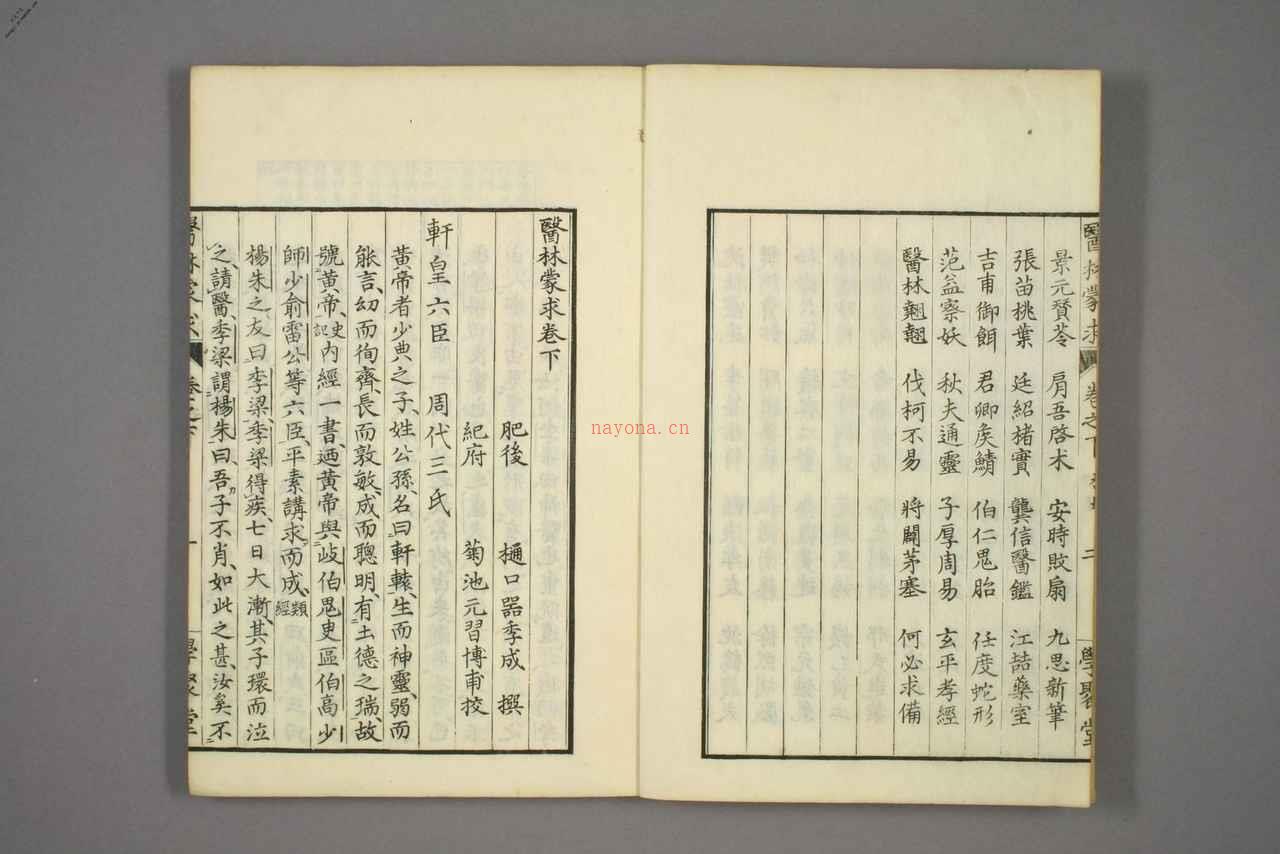 景元贊苓 肩吾啓术 安時敗扇 九思新筆
張苗桃葉 廷紹楮實 龔信醫鑑 江喆藥室
吉甫御餌 君卿矦鯖 伯仁鬼胎 任度蛇形
范益察妖 秋夫通靈 子厚周易 玄平孝經
醫林翹翹 伐柯不易 將闢茅塞 何必求備
醫林蒙求 卷之下 二 學聚堂
醫林蒙求卷下
肥後 樋口器季成 撰
紀府 菊池元習博甫挍
軒皇六臣 周代三氏
黄帝者少典之子、姓公孫、名曰軒轅、生而神靈、弱而
能言、幼而徇齊、長而敦敏、成而聰明、有土德之瑞、故
號黄帝、史記内經一書、廼黄帝與岐伯鬼臾區伯高少
師少俞雷公等六臣、平素講求而成、類經
楊朱之友曰季梁、季梁得疾、七日大漸、其子環而泣
之、請醫、季梁謂楊朱曰、吾子不肖、如此之甚、汝奚不
醫林蒙求 卷之下 一 學聚堂
nayona.cn